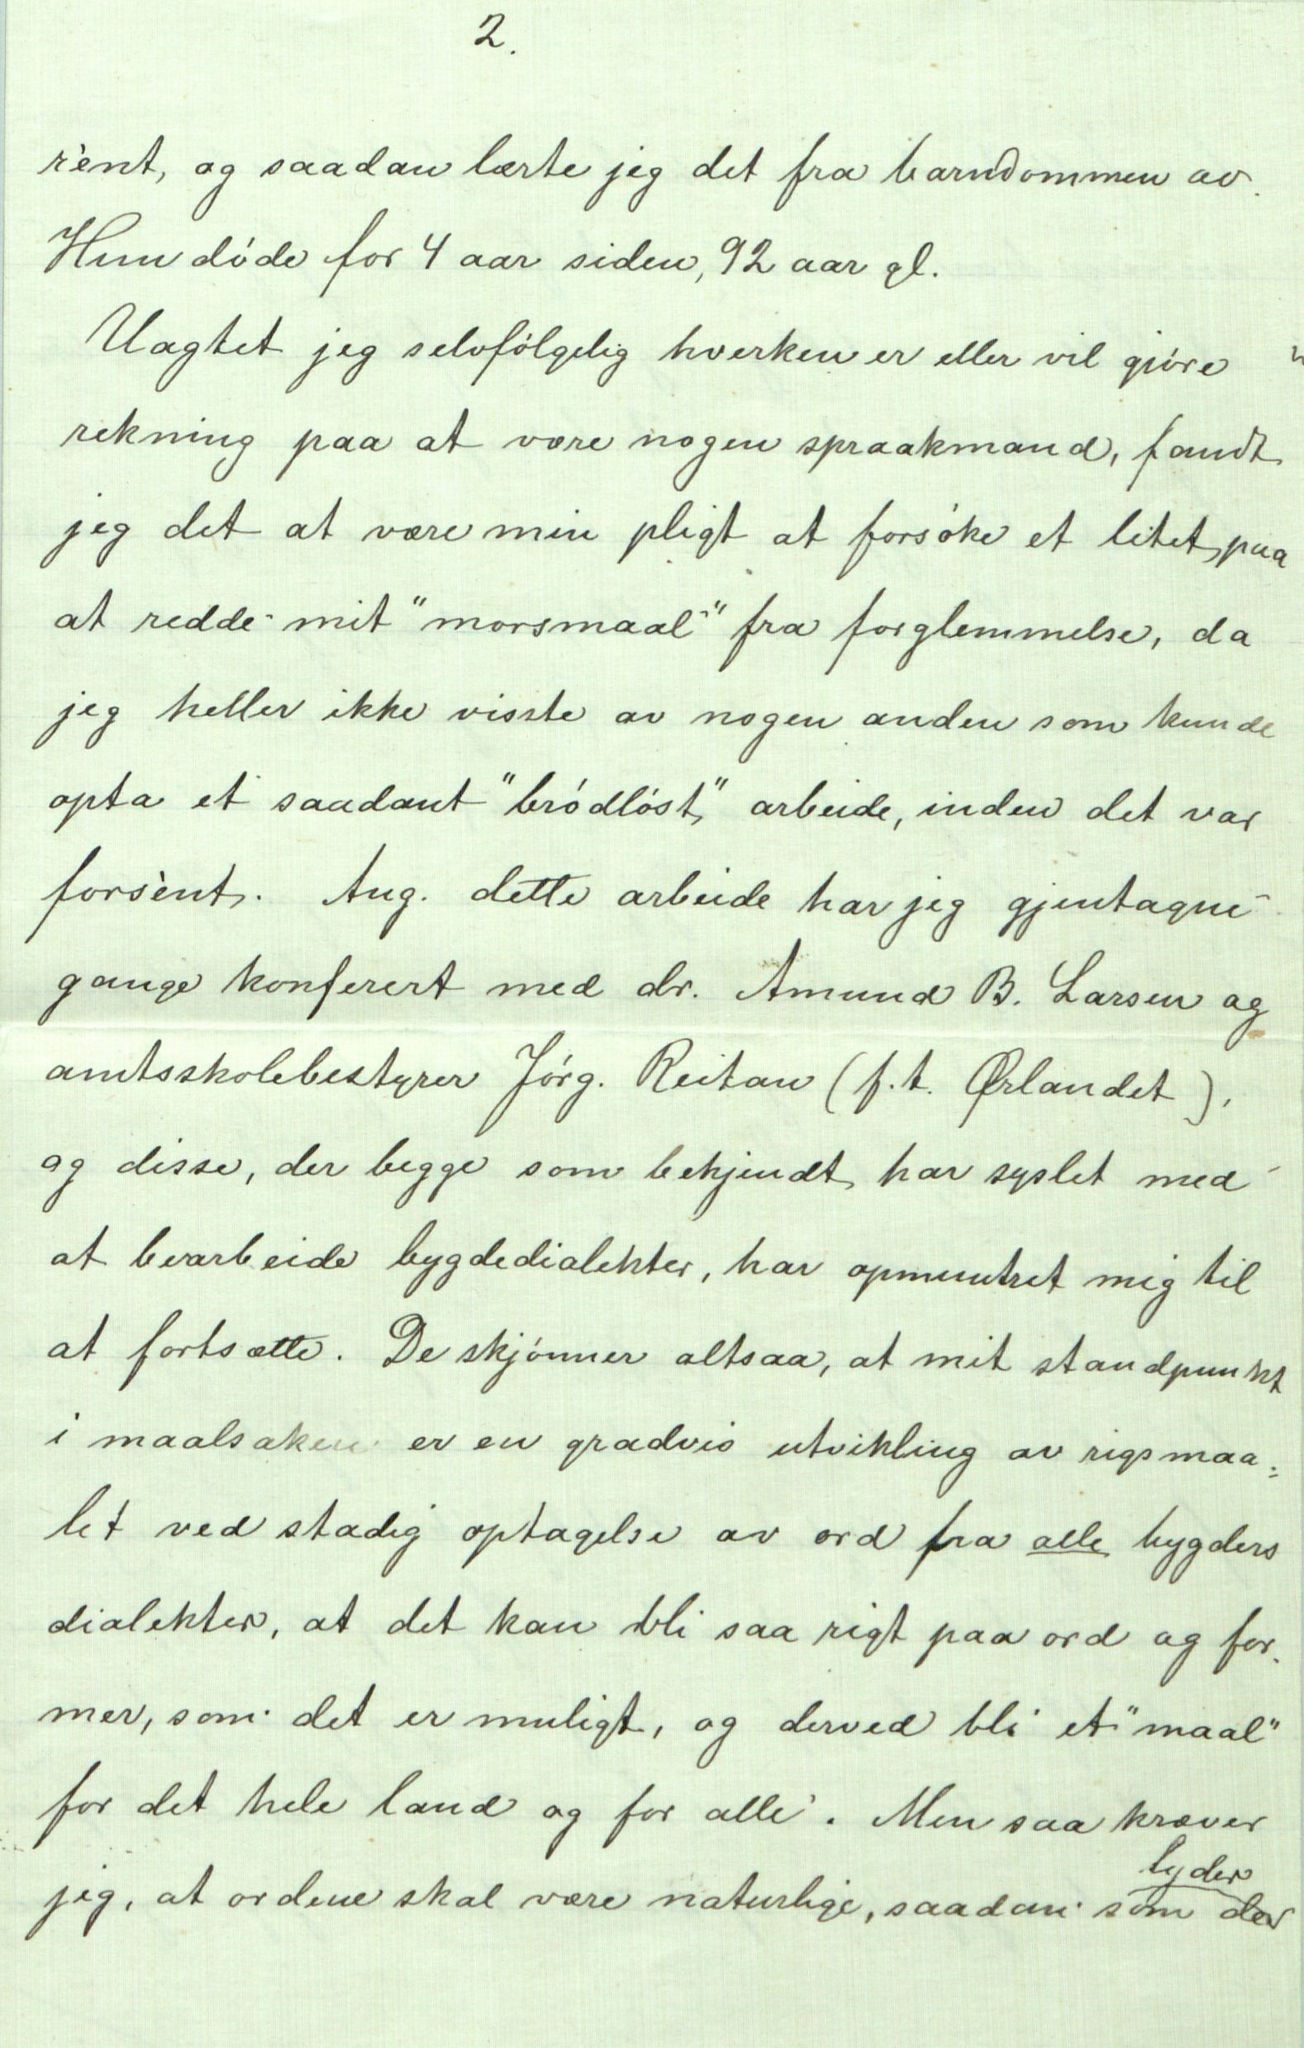 2.
rent, og saadan lærte jeg det fra barndommen av.
Hun döde for 4 aar siden, 92 aar gl.
Uagtet jeg selvfölgelig hverken er eller vil gjöre
rekning paa at være nogen spraakmand, fandt
jeg det at være min pligt at forsöke et litet paa
at redde mit "morsmaal" fra forglemmelse, da
jeg heller ikke visste av nogen anden som kunde
opta et saadant "brödlöst" arbeide, inden det var
forsent. Ang. dette arbeide har jeg gjentagne
gange konferert med dr. Amund B. Larsen og
amtsskolebestyrer Jörg. Reitan (f.t. Ørlandet),
og disse, der begge som bekjendt har syslet med
at bearbeide bygdedialekter, har opmuntret mig til
at fortsætte. De skjönner altsaa, at mit standpunkt
i maalsaken er en gradvis utvikling av rigsmaa=
let ved stadig optagelse av ord fra alle bygders
dialekter, at det kan bli saa rigt paa ord og for-
mer, som det er muligt, og derved bli et "maal"
for det hele land og for alle. Men saa kræver
lyder
jeg, at ordene skal være naturlige, saadan som der